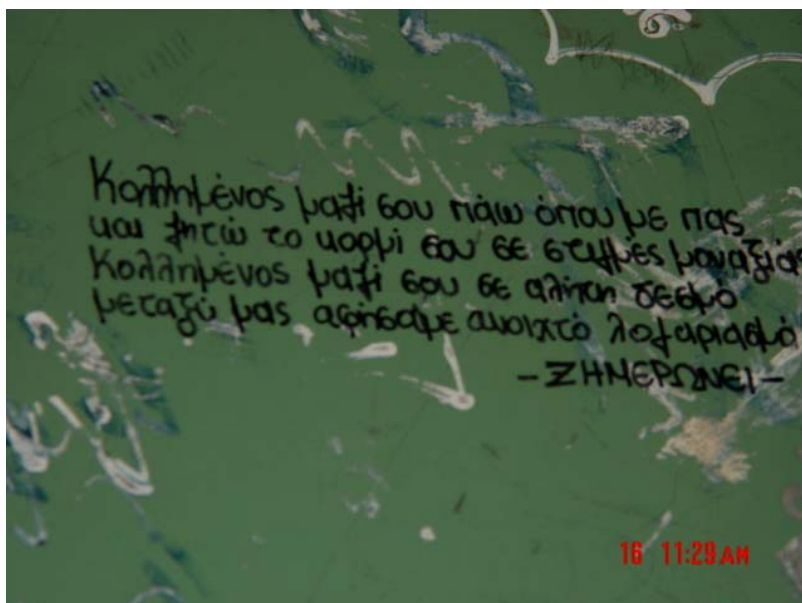 Κολλημένος μαζί σου πάω όπου με πας
και ζητώ το κορμί σου σε στιγμές μοναξιάς
Κολλημένος μαζί σου σε αλήτη δεσμό
μεταξύ μας αφήσαμε ανοιχτό λογαριασμό
- ΖΗΜΕΡΩΝΕΙ -
16 11:29 AM